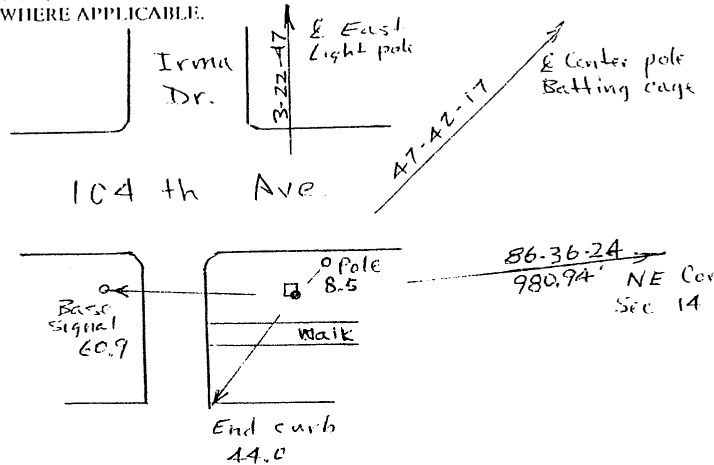 WHERE APPLICABLE.
Irma
Dr.
3-22-47
℄ East
Light pole
℄ Center pole
Batting cage
47-42-17
104 th Ave.
Pole
8.5
86-36-24
980.94'
NE Cor
Sec 14
Base
Signal
60.9
Walk
End curb
44.0